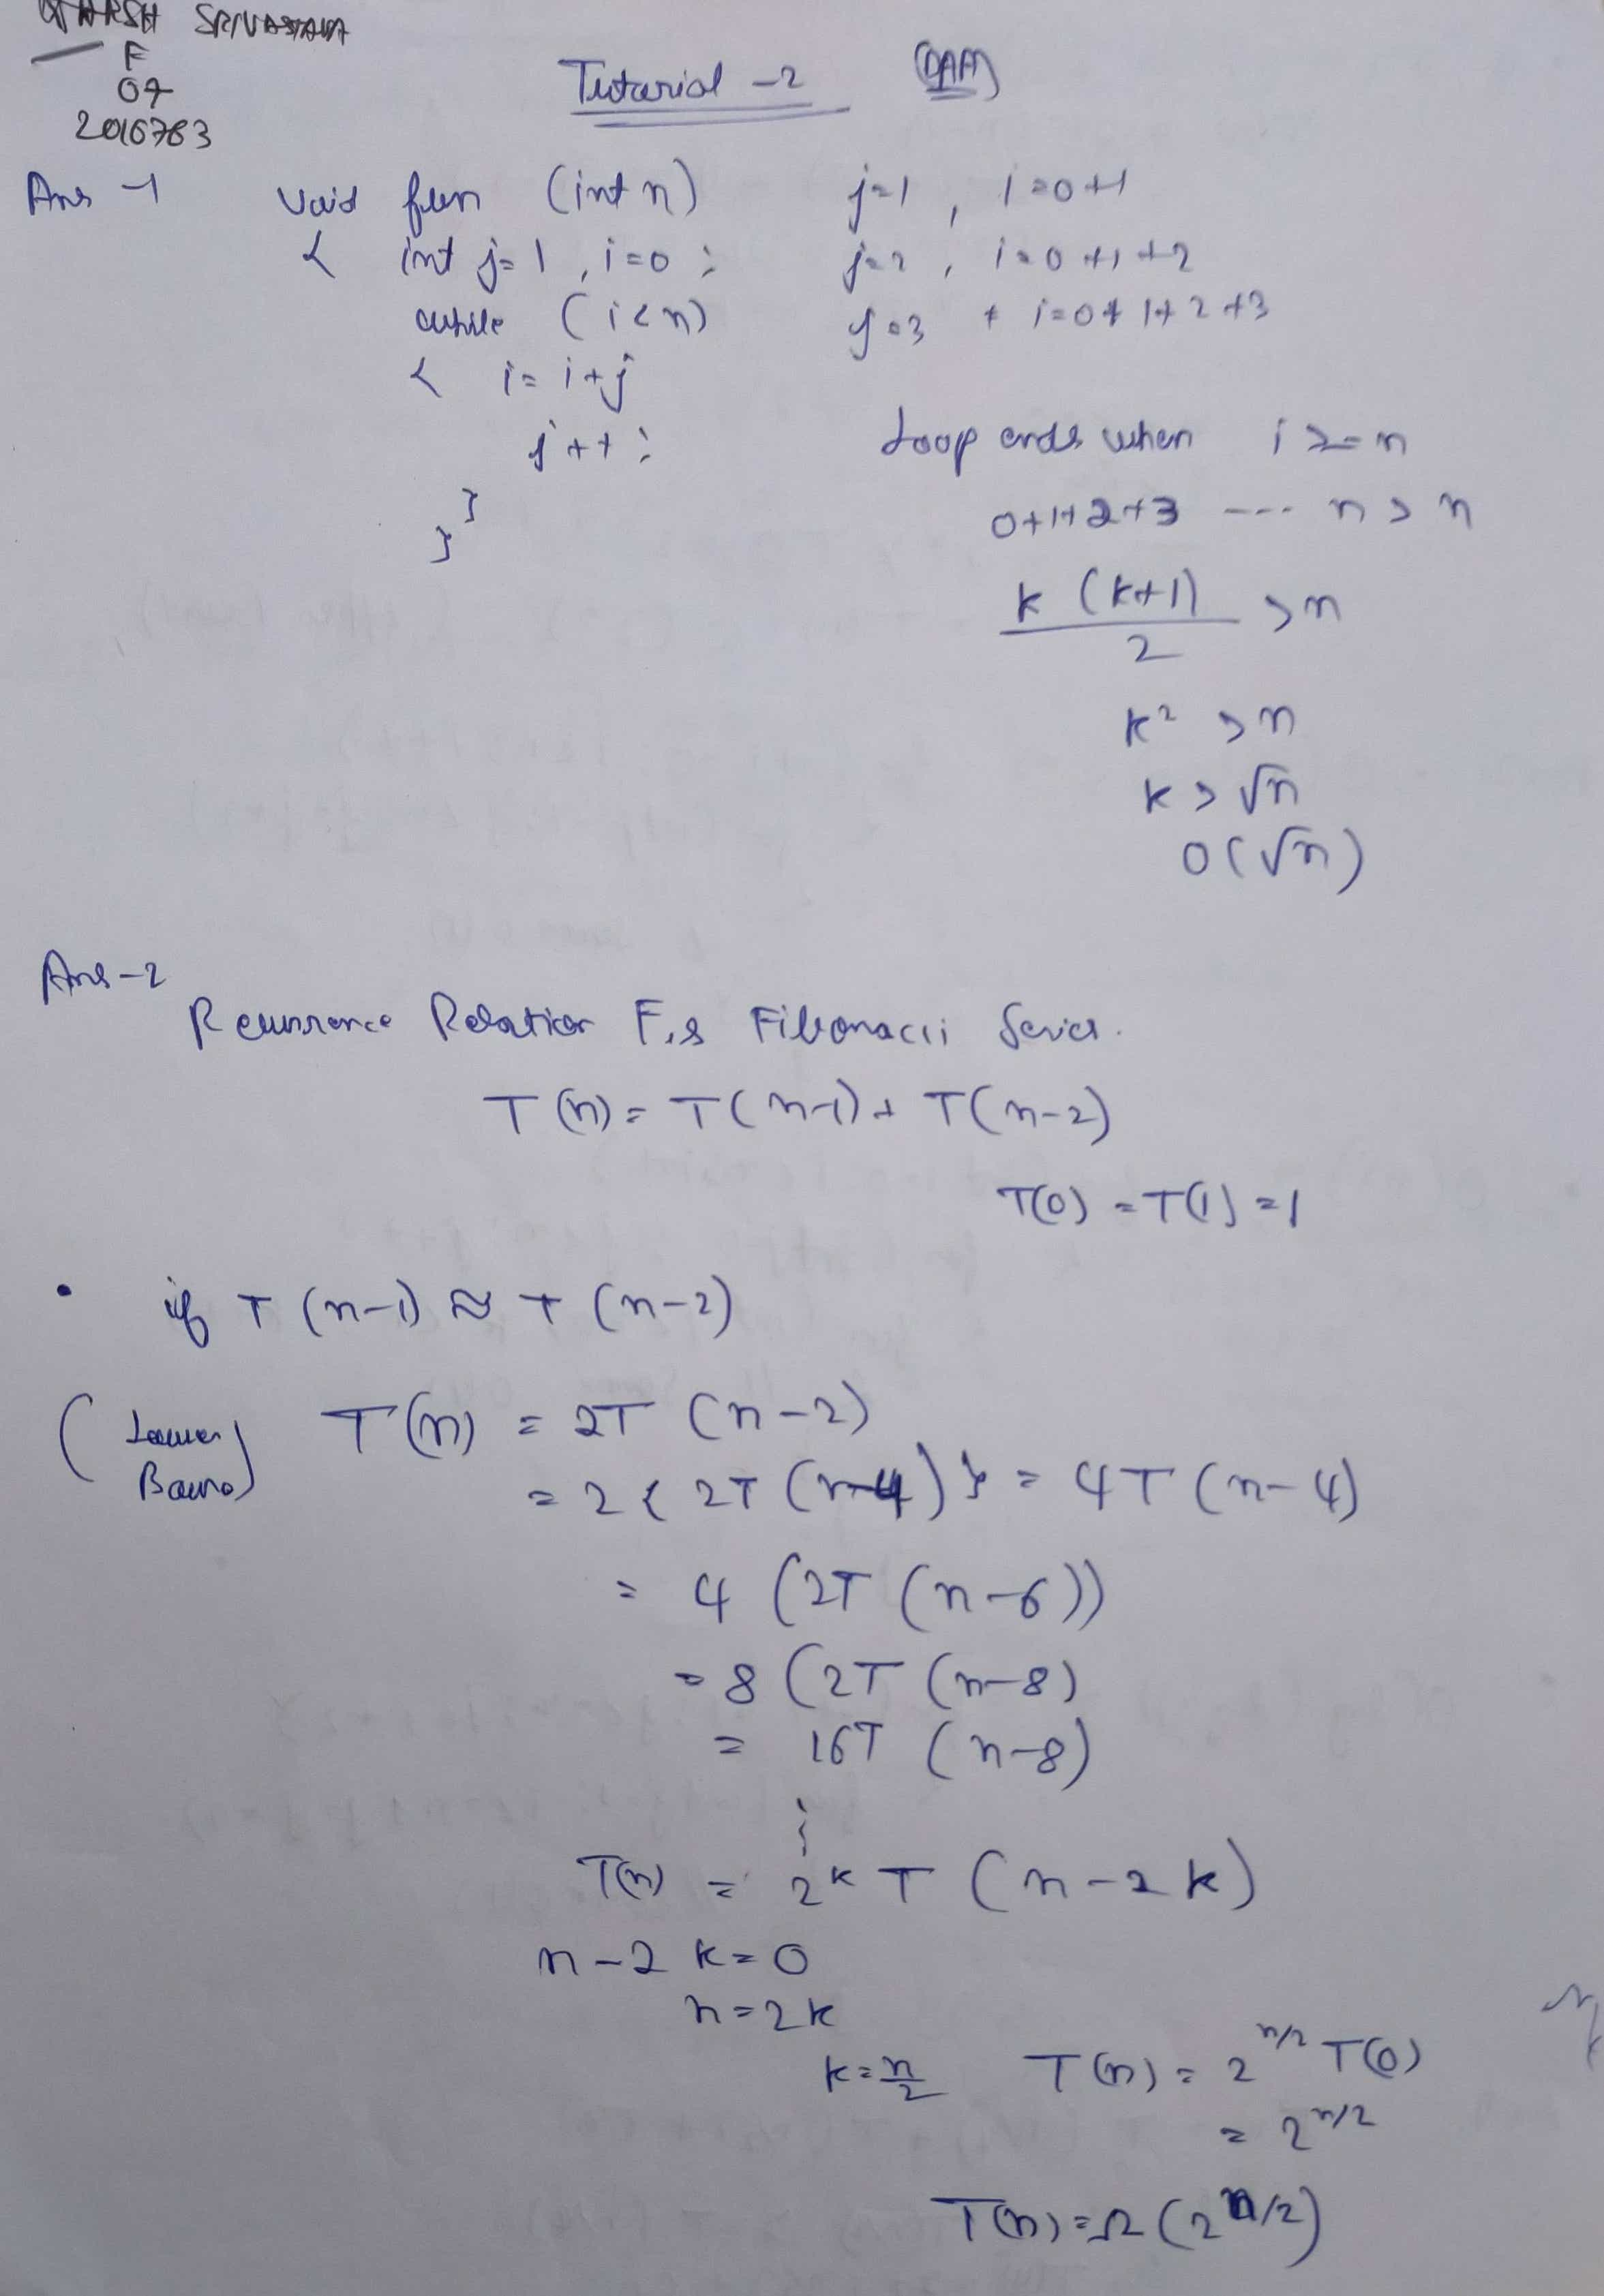 SRIVASTAVA
F
07
2016783
Tutorial -2 (DAA)
Ans -1 void fun (int n) j=1 , i=0+1
{ int j=1 , i=0 ; j=2 , i=0+1+2
while (i<n) j=3 , i=0+1+2+3
{ i=i+j
j++;
Loop ends when i>=n
}
0+1+2+3 ---- n > n
}
k (k+1) / 2 > n
k² > n
k > √n
O(√n)
Ans-2
Recurrence Relation For Fibonacci Series.
T(n) = T(n-1) + T(n-2)
T(0) = T(1) = 1
• if T(n-1) ≈ T(n-2)
(Lower Bound) T(n) = 2T (n-2)
= 2 { 2T (n-4) } = 4T (n-4)
= 4 (2T (n-6))
= 8 (2T (n-8)
= 16T (n-8)
T(n) = 2ᵏ T (n-2k)
n-2k=0
n=2k
k=n/2 T(n) = 2^n/2 T(0)
= 2^n/2
T(n) = Ω(2^n/2)